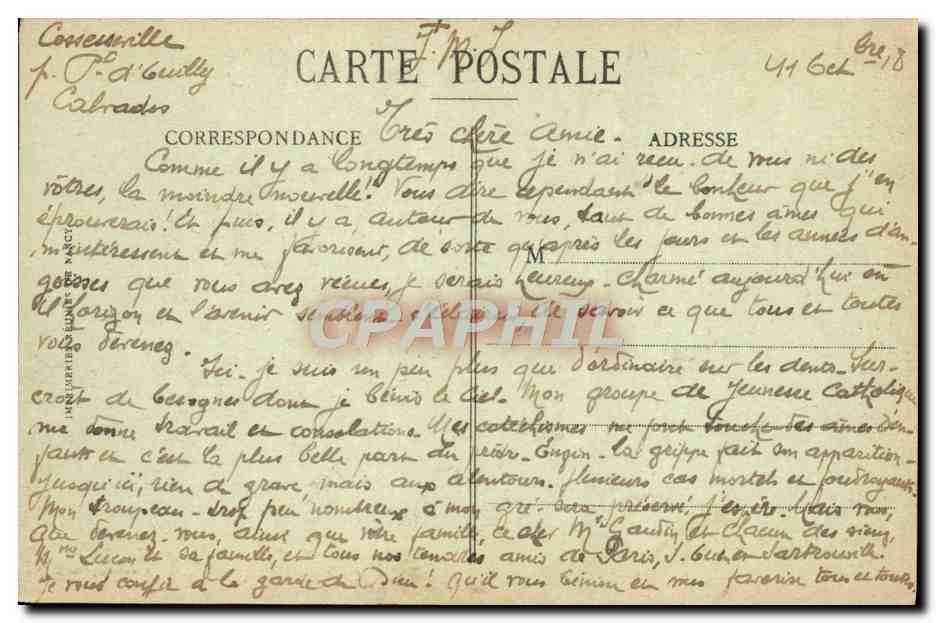 J. M. J.
Cossesseville
p. Pt d'Ouilly
Calvados
CARTE POSTALE
11 Octbre 18
CORRESPONDANCE
Très chère Amie.
ADRESSE
Comme il y a longtemps que je n'ai reçu de vous ni des
vôtres, la moindre nouvelle! Vous dire cependant le bonheur que j'en
éprouverais! Et puis, il y a, autour de vous, tant de bonnes âmes qui
m'intéressent et me favorisent, de sorte qu'après les jours et les années d'an-
M
goisses que vous avez vécues, je serais heureux - charmé aujourd'hui où
l'horizon et l'avenir semblent de savoir ce que tous et toutes
vous devenez.
CPAPHIL
Ici - je suis un peu plus que d'ordinaire sur les dents. Sur-
croît de besognes dont je bénis le Ciel. Mon groupe de Jeunesse Catholique
me donne travail et consolations. Mes catéchismes me font toucher des âmes d'en-
fants et c'est la plus belle part du prêtre. Enfin - la grippe fait son apparition -
Jusqu'ici, rien de grave, mais aux alentours, plusieurs cas mortels et foudroyants.
Mon troupeau - trop peu nombreux à mon gré - sera préservé, j'espère. Mais vous,
que devenez-vous, ainsi que votre famille, ce cher Mr et chacun des siens,
Mme et sa famille, et tous nos amis de Paris, Sartrouville.
Je vous confie à la garde de Dieu! Qu'il vous bénisse et vous favorise tous et toutes.
IMPRIMERIES RÉUNIES DE NANCY